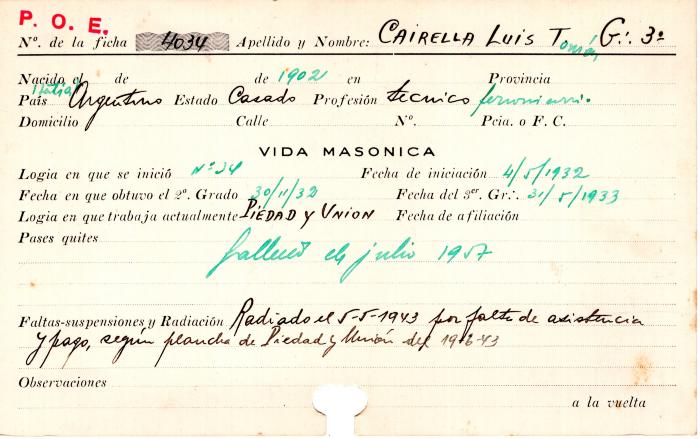 P. O. E.
Nº. de la ficha 4034 Apellido y Nombre: CAIRELLA LUIS Tomás G∴ 3º
Nacido el de de 1902 en Provincia
Italia
País Argentino Estado Casado Profesión técnico ferroviario.
Domicilio Calle Nº. Pcia. o F. C.
VIDA MASONICA
Logia en que se inició Nº 34 Fecha de iniciación 4/5/1932
Fecha en que obtuvo el 2º. Grado 30/11/32 Fecha del 3er. Gr∴ 31/5/1933
Logia en que trabaja actualmente PIEDAD y UNION Fecha de afiliación
Pases quites
falleció de julio 1957
Faltas-suspensiones y Radiación Radiado el 5-5-1943 por falta de asistencia
y pago, según plancha de Piedad y Unión del
Observaciones
a la vuelta